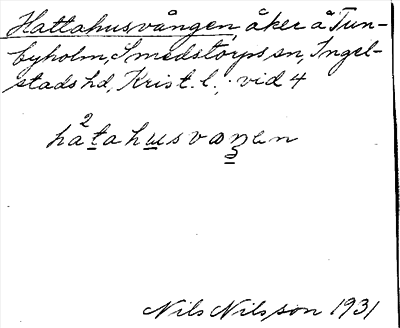 Hattahusvången, åker å Tun-
byholm, Smedstorps sn, Ingel-
stads hd, Krist. l., vid 4
2
hatahusvaŋen
3
Nils Nilsson 1931